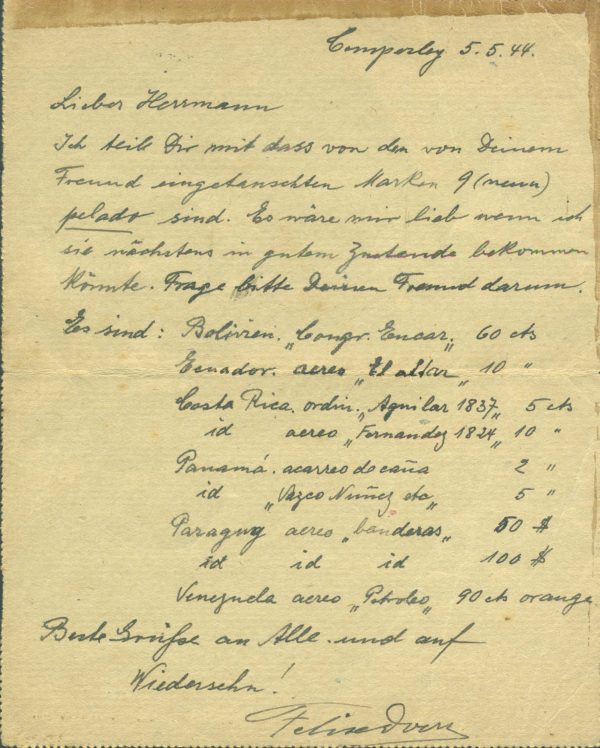 Temperley 5.5.44.
Lieber Herrmann
Ich teile Dir mit dass von den von Deinem
Freund eingetauschten Marken 9 (neun)
pelado sind. Es wäre mir lieb wenn ich
sie nächstens in gutem Zustande bekommen
könnte. Frage bitte Deinen Freund darum.
Es sind: Bolivien. „Congr. Eucar.„ 60 cts
Ecuador. aereo „El altar„ 10 "
Costa Rica. ordin. „Aguilar 1837„ 5 cts
id aereo „Fernandez 1824„ 10 "
Panamá. acarreo de caña 2 "
id „Vazco Nuñez etc„ 5 "
Paraguay aereo „banderas„ 50 $
id id id 100 $
Venezuela aereo „Petroleo„ 90 cts orange
Beste Grüße an Alle. und auf
Wiedersehn!